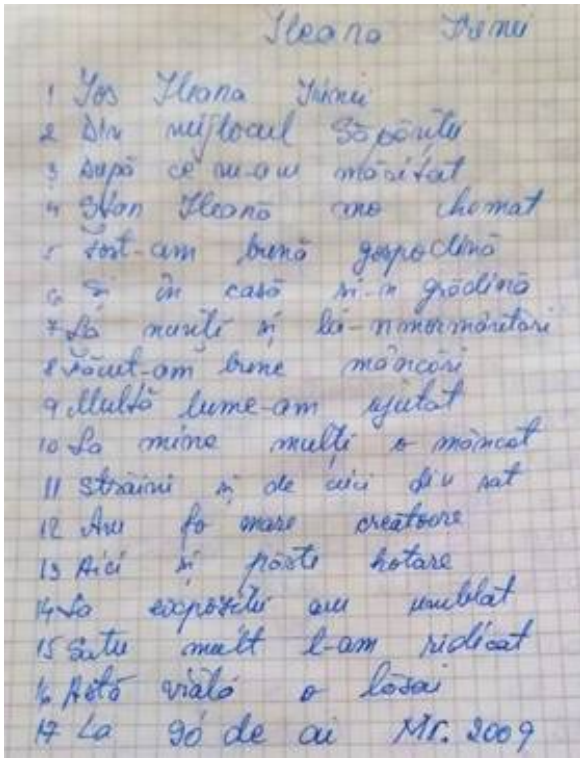 Ileana Irinii
1 Jos Ileana Irinii
2 Din mijlocul Săpânțîi
3 După ce m-am măritat
4 Stan Ileană mo chemat
5 Fost-am bună gospodină
6 Și în casă și-n grădină
7 La nunti și la-nmormântari
8 Făcut-am bune mâncări
9 Multă lume-am ajutat
10 La mine mulți o mâncat
11 Străini și de aici din sat
12 Am fo mare creatoare
13 Aici și păste hotare
14 La expoziții am umblat
15 Satu mult l-am ridicat
16 Astă viată o lăsai
17 La 90 de ai Mr. 2009